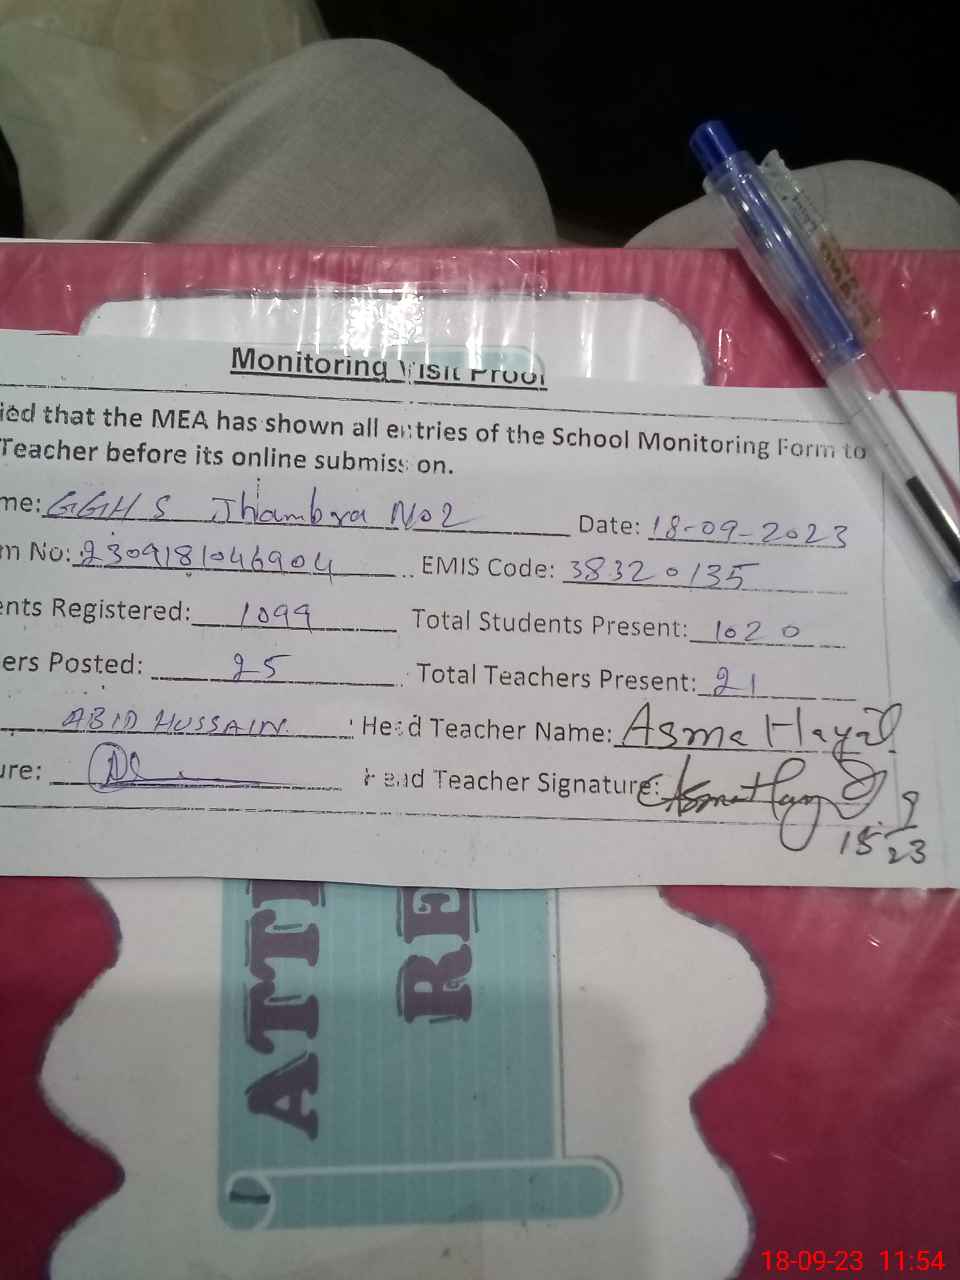 Monitoring Visit Proof
ied that the MEA has shown all entries of the School Monitoring Form to
Teacher before its online submission.
me: GGHS Jhambra No 2 Date: 18-09-2023
m No: 2309181046904 EMIS Code: 38320135
ents Registered: 1099 Total Students Present: 1020
ers Posted: 25 Total Teachers Present: 21
ABID HUSSAIN Head Teacher Name: Asma Hayat
ure: Head Teacher Signature:
ATTE
RE
18-09-23 11:54